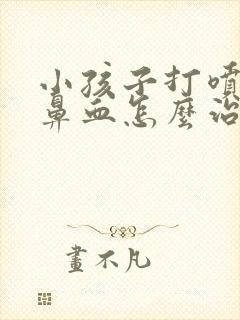 小孩子打噴
鼻血怎麼治
畫不凡